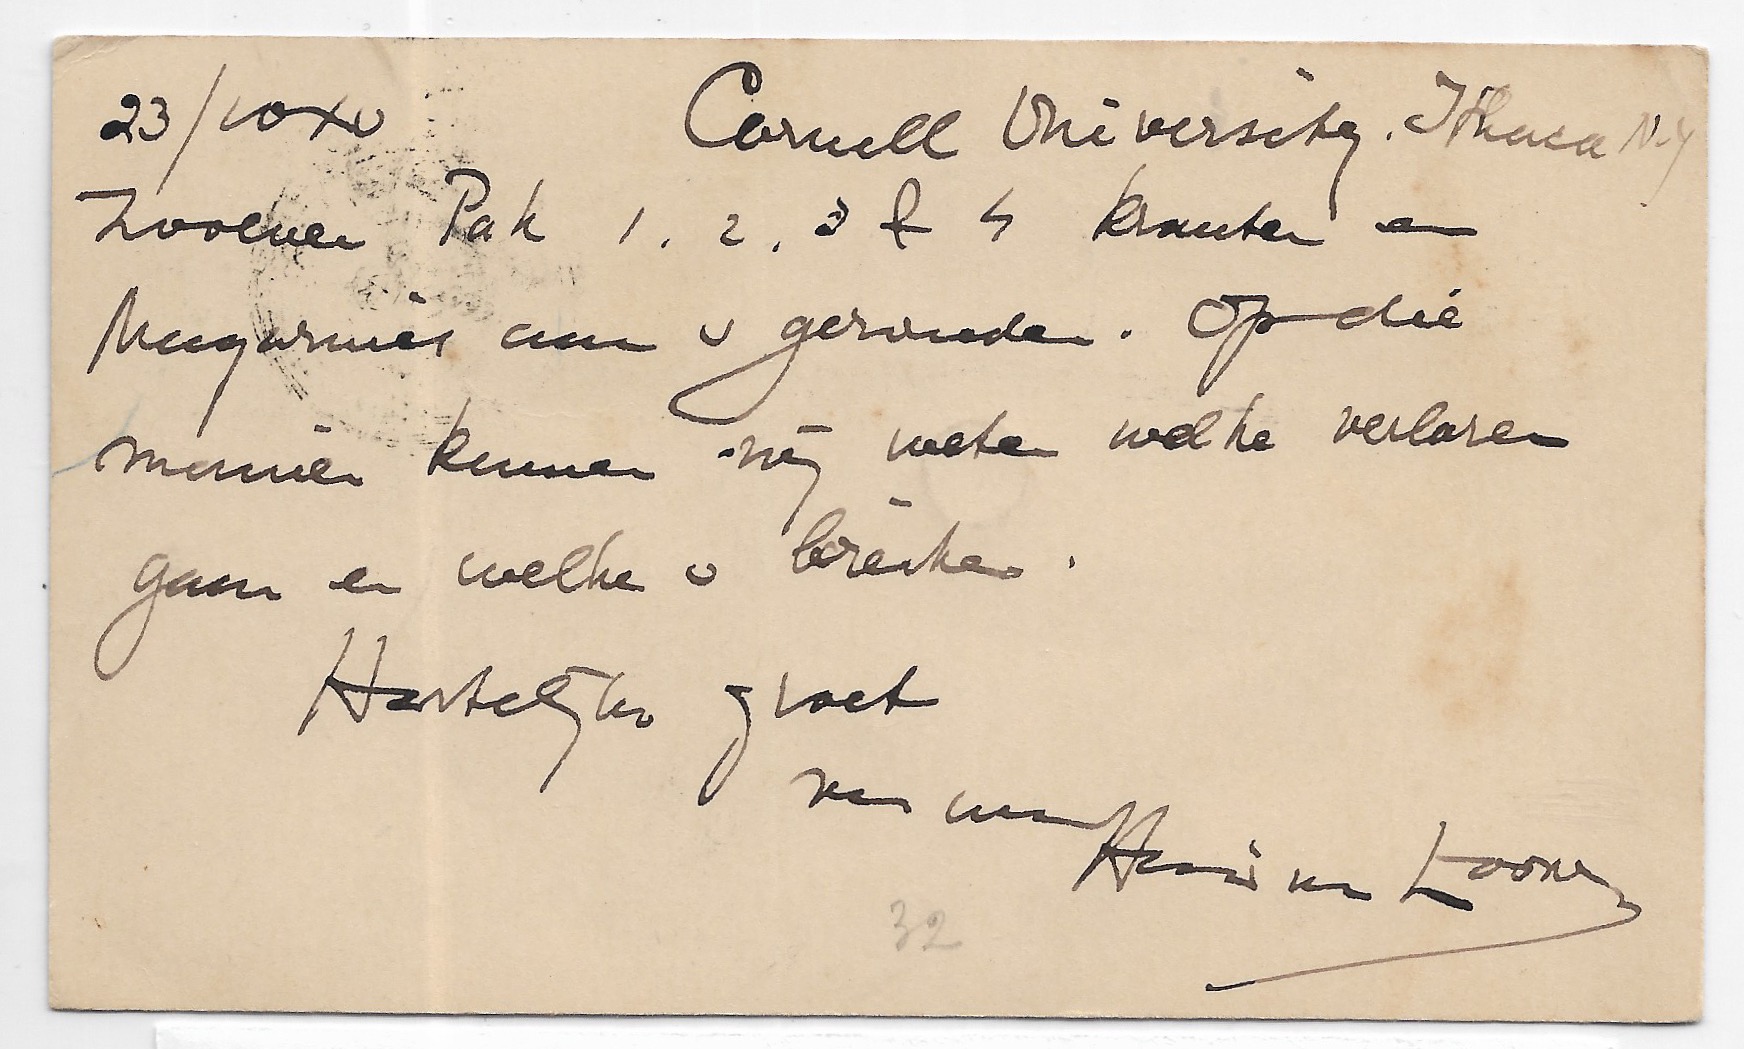 23/10 XV Cornell University. Ithaca N.Y
Zooeven Pak 1, 2, 3 & 4 kranten en
Magazines aan u gezonden. Op die
manier kunnen wij weten welke verloren
gaan en welke u bereiken.
Hartelijke groet
van uw
Hendrik van Loon
32